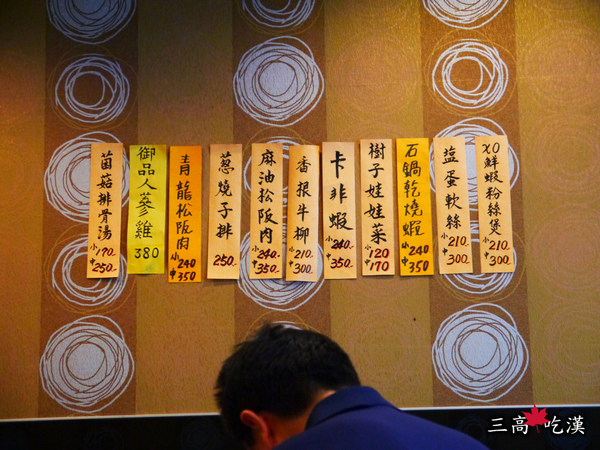 菌菇排骨湯 小170. 中250.
御品人蔘雞 380
青龍松阪肉 小240 中350
蔥燒子排 250.
麻油松阪肉 小240. 中350.
香根牛柳 小210. 中300
卡非蝦 小240. 中350.
樹子娃娃菜 小120 中170
石鍋乾燒蝦 小240 中350
塩蛋軟絲 小210. 中300
XO鮮蝦粉絲煲 小210. 中300.
三高吃漢